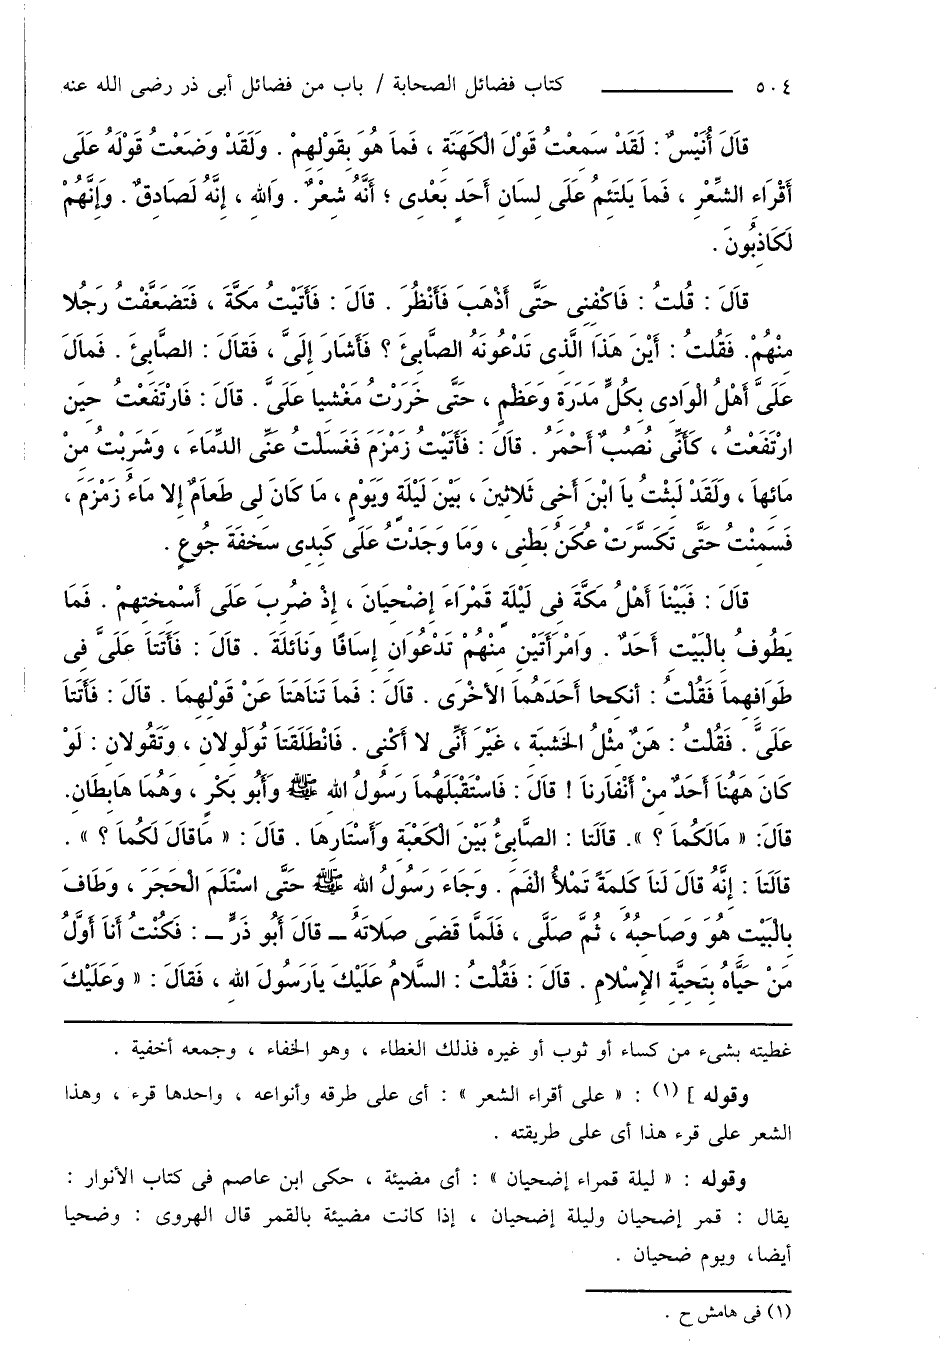 ٥٠٤ ــــــــــــ كتاب فضائل الصحابة / باب من فضائل أبى ذر رضى الله عنه
قَالَ أُنَيْسٌ : لَقَدْ سَمِعْتُ قَوْلَ الْكَهَنَةِ ، فَمَا هُوَ بِقَوْلِهِمْ . وَلَقَدْ وَضَعْتُ قَوْلَهُ عَلَى
أَقْرَاءِ الشِّعْرِ ، فَمَا يَلْتَئِمُ عَلَى لِسَانِ أَحَدٍ بَعْدِى ؛ أَنَّهُ شِعْرٌ . وَاللهِ ، إِنَّهُ لَصَادِقٌ . وَإِنَّهُمْ
لَكَاذِبُونَ .
قَالَ : قُلتُ : فَاكْفِنِى حَتَّى أَذْهَبَ فَأَنْظُرَ . قَالَ : فَأَتَيْتُ مَكَّةَ ، فَتَضَعَّفْتُ رَجُلا
مِنْهُمْ. فَقُلتُ : أَيْنَ هَذَا الَّذِى تَدْعُونَهُ الصَّابِئَ ؟ فَأَشَارَ إِلَىَّ ، فَقَالَ : الصَّابِئَ . فَمَالَ
عَلَىَّ أَهْلُ الْوَادِى بِكُلِّ مَدَرَةٍ وَعَظْمٍ ، حَتَّى خَرَرْتُ مَغْشِيا عَلَىَّ . قَالَ : فَارْتَفَعْتُ حِينَ
ارْتَفَعْتُ ، كَأَنِّى نُصُبٌ أَحْمَرُ . قَالَ : فَأَتَيْتُ زَمْزَمَ فَغَسَلْتُ عَنِّى الدِّمَاءَ ، وَشَرِبْتُ مِنْ
مَائِهَا ، وَلَقَدْ لَبِثْتُ يَا ابْنَ أَخِى ثَلاثِينَ ، بَيْنَ لَيْلَةٍ وَيَوْمٍ ، مَا كَانَ لِى طَعَامٌ إِلا مَاءُ زَمْزَمَ ،
فَسَمِنْتُ حَتَّى تَكَسَّرَتْ عُكَنُ بَطْنِى ، وَمَا وَجَدْتُ عَلَى كَبِدِى سَخْفَةَ جُوعٍ .
قَالَ : فَبَيْنَا أَهْلُ مَكَّةَ فِى لَيْلَةٍ قَمْرَاءَ إِضْحِيَانَ ، إِذْ ضُرِبَ عَلَى أَسْمِخَتِهِمْ . فَمَا
يَطُوفُ بِالْبَيْتِ أَحَدٌ . وَامْرَأَتَيْنِ مِنْهُمْ تَدْعُوَانِ إِسَافًا وَنَائِلَةَ . قَالَ : فَأَتَتَا عَلَىَّ فِى
طَوَافِهِمَا فَقُلْتُ : أنكحا أَحَدَهُمَا الأخْرَى . قَالَ : فَمَا تَنَاهَتَا عَنْ قَوْلِهِمَا . قَالَ : فَأَتَتَا
عَلَىَّ . فَقُلْتُ : هَنٌ مِثْلُ الخَشَبَةِ ، غَيْرَ أَنِّى لا أَكْنِى . فَانْطَلَقَتَا تُوَلْوِلانِ ، وَتَقُولانِ : لَوْ
كَانَ هَهُنَا أَحَدٌ مِنْ أَنْفَارِنَا ! قَالَ : فَاسْتَقْبَلَهُمَا رَسُولُ اللهِ ﷺ وَأَبُو بَكْرٍ ، وَهُمَا هَابِطَانِ.
قَالَ: « مَالَكُمَا ؟ ». قَالَتَا : الصَّابِئُ بَيْنَ الكَعْبَةِ وَأَسْتَارِهَا . قَالَ : « مَاقَالَ لَكُمَا ؟ » .
قَالَتَا : إِنَّهُ قَالَ لَنَا كَلِمَةً تَمْلأُ الْفَمَ . وَجَاءَ رَسُولُ اللهِ ﷺ حَتَّى اسْتَلَمَ الْحَجَرَ ، وَطَافَ
بِالْبَيْتِ هُوَ وَصَاحِبُهُ ، ثُمَّ صَلَّى ، فَلَمَّا قَضَى صَلاتَهُ ــ قَالَ أَبُو ذَرٍّ ــ : فَكُنْتُ أَنَا أَوَّلُ
مَنْ حَيَّاهُ بِتَحِيَّةِ الإِسْلامِ . قَالَ : فَقُلْتُ : السَّلامُ عَلَيْكَ يَارَسُولَ اللهِ ، فَقَالَ : « وَعَلَيْكَ
غطيته بشىء من كساء أو ثوب أو غيره فذلك الغطاء ، وهو الخفاء ، وجمعه أخفية .
وقوله ] (١) : « على أقراء الشعر » : أى على طرقه وأنواعه ، واحدها قرء ، وهذا
الشعر على قرء هذا أى على طريقته .
وقوله : « ليلة قمراء إضحيان » : أى مضيئة ، حكى ابن عاصم فى كتاب الأنوار :
يقال : قمر إضحيان وليلة إضحيان ، إذا كانت مضيئة بالقمر قال الهروى : وضحيا
أيضا، ويوم ضحيان .
(١) فى هامش ح .